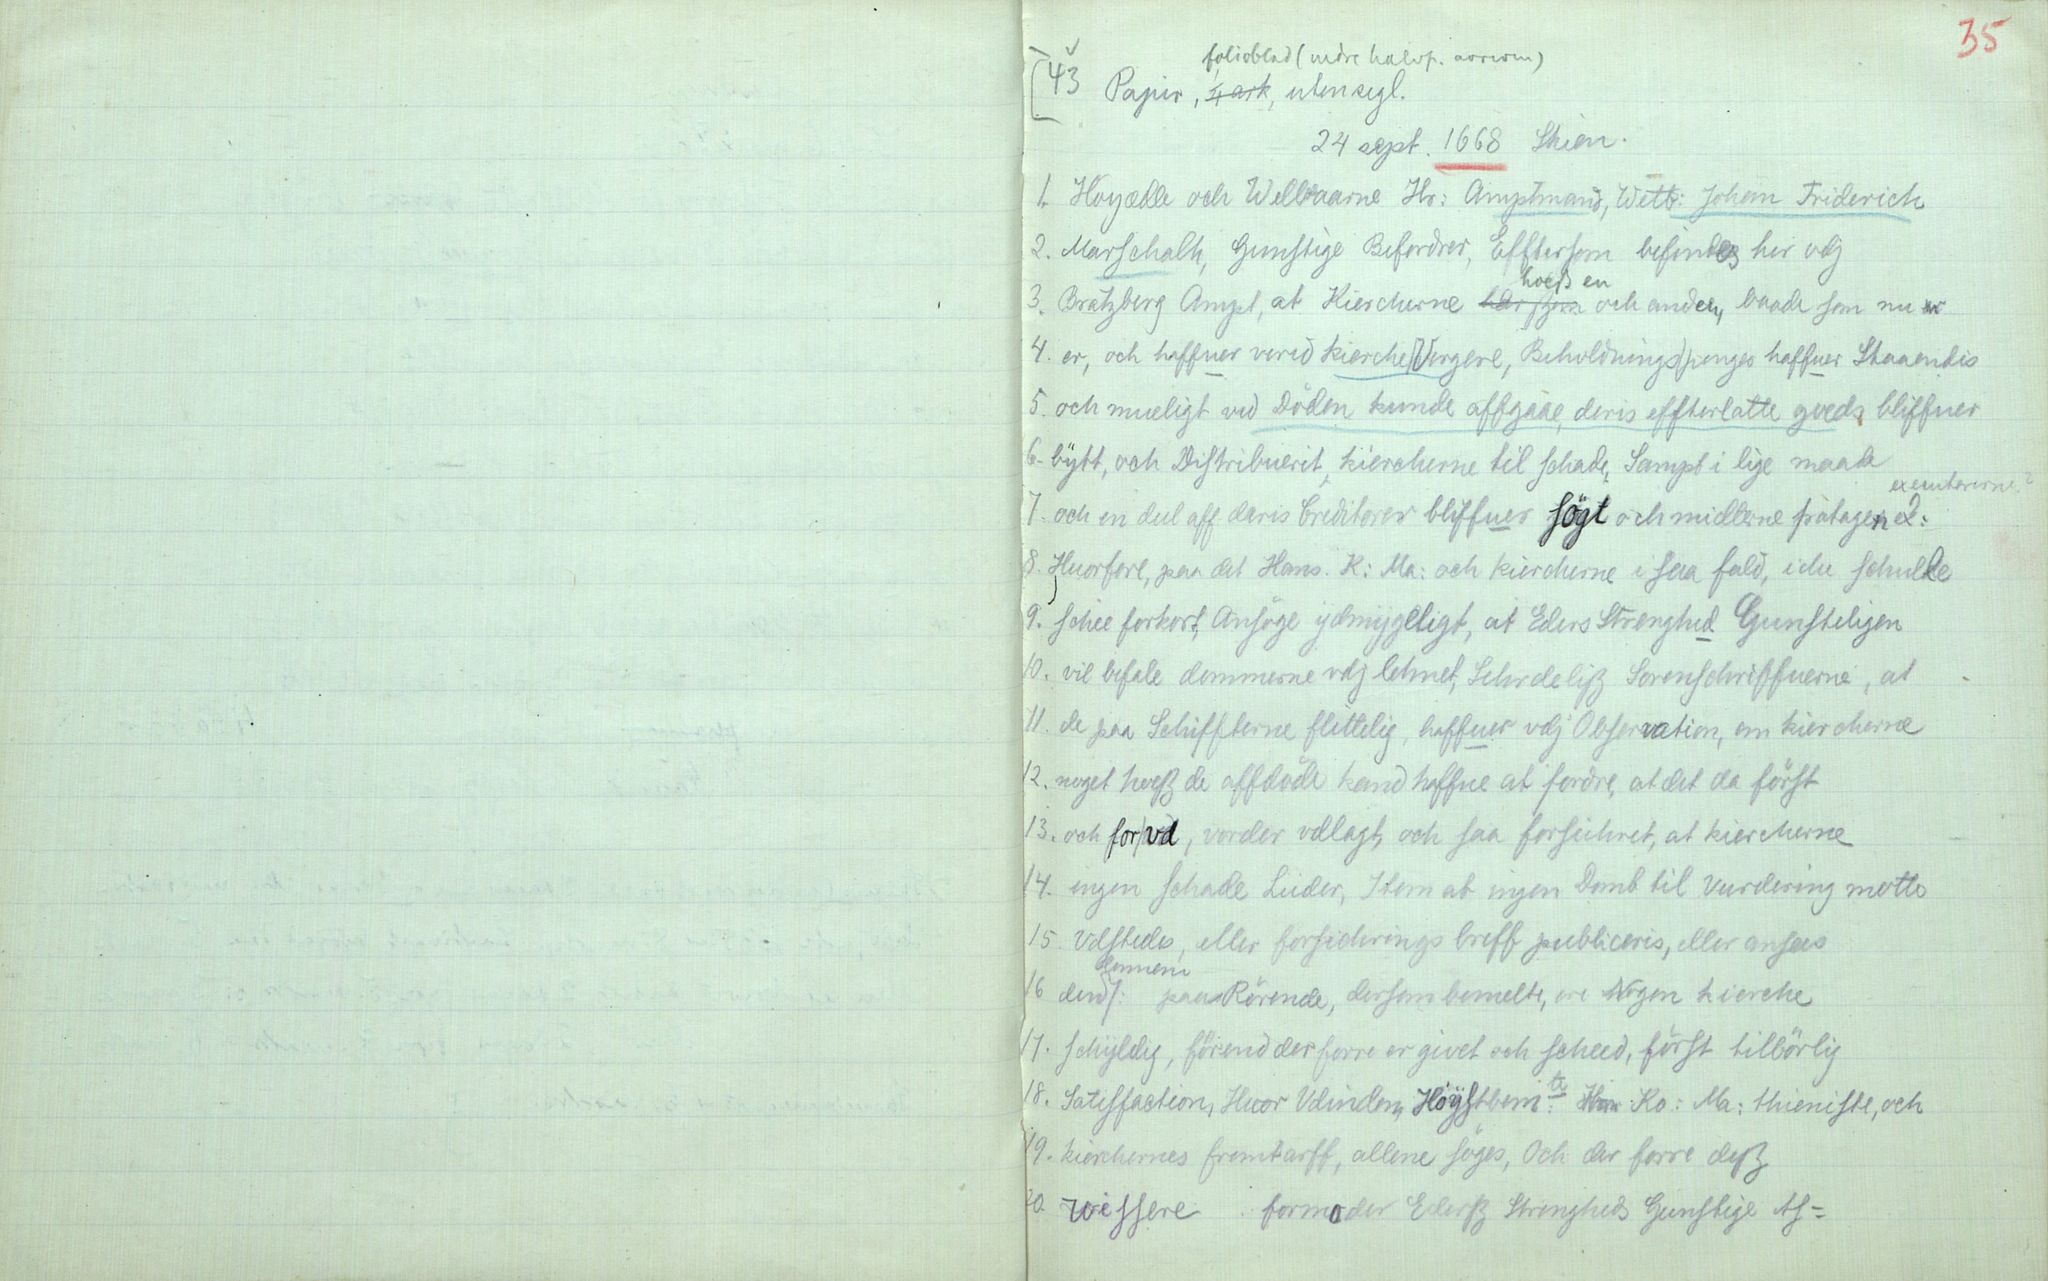 35
folioblad (nedre halvp. avreven)
[43 Papir, 1/4 ark, uten segl.
24 sept. 1668 Skien.
1. Höyædle och Welbaarne Hr: Amptmand, Welb: Johan Friderich
2. Marschalk, Gunstige Befordrer, Efftersom befindes her vdj
3. Bratzberg Ampt, at Kiercherne hoeß en och anden, baade som nu
4. er, och haffuer verid kierche Vergere, Beholdnings penge haffuer Staaendis
5. och mueligt ved Döden kunde affgaae, deris effterlatte goeds bliffuer
6. býtt, och Distribuerit, kiercherne til schade, Sampt i lige maade
executererne?
7. och en deel aff deris Creditorer bliffuer sögt och midlerne fratagen ed:
8. Huorfore, paa det Hans. K: Ma: och kiercherne i saa fald, icke schulle
9. schee forkort, Ansöge ydmýgeligt, at Eders Strenghed Gunsteligen
10. vil befale dommerne vdj lehnet, Sehrdeliß Sorenschriffuerne, at
11. de paa Schiffterne flittelig, haffuer vdj Observation, om kiercherne
12. noget hoeß de affdöde kand haffue at fordre, at det da först
13. och for vd, vorder vdlagt, och saa forsichret, at kiercherne
14. ingen schade Lieder, Item at ingen Domb til Vurdering motte
15. Vdstedes, eller forsichrings breff publiceris, eller ansees
16 dends: paa Rörende, dersom bemelte, ere Nogen kierche
17. schýldig, förend der forre er givet och scheed, först tilbörlig
18. Satisfaction, Huor Vdinden, Höýstbem:te Ko: Ma: thieniste, och
19. kierchernes fremtarff, allene söges, Och der forre deß
20. wissere formoder Ederß Strengheds Gunstige As=